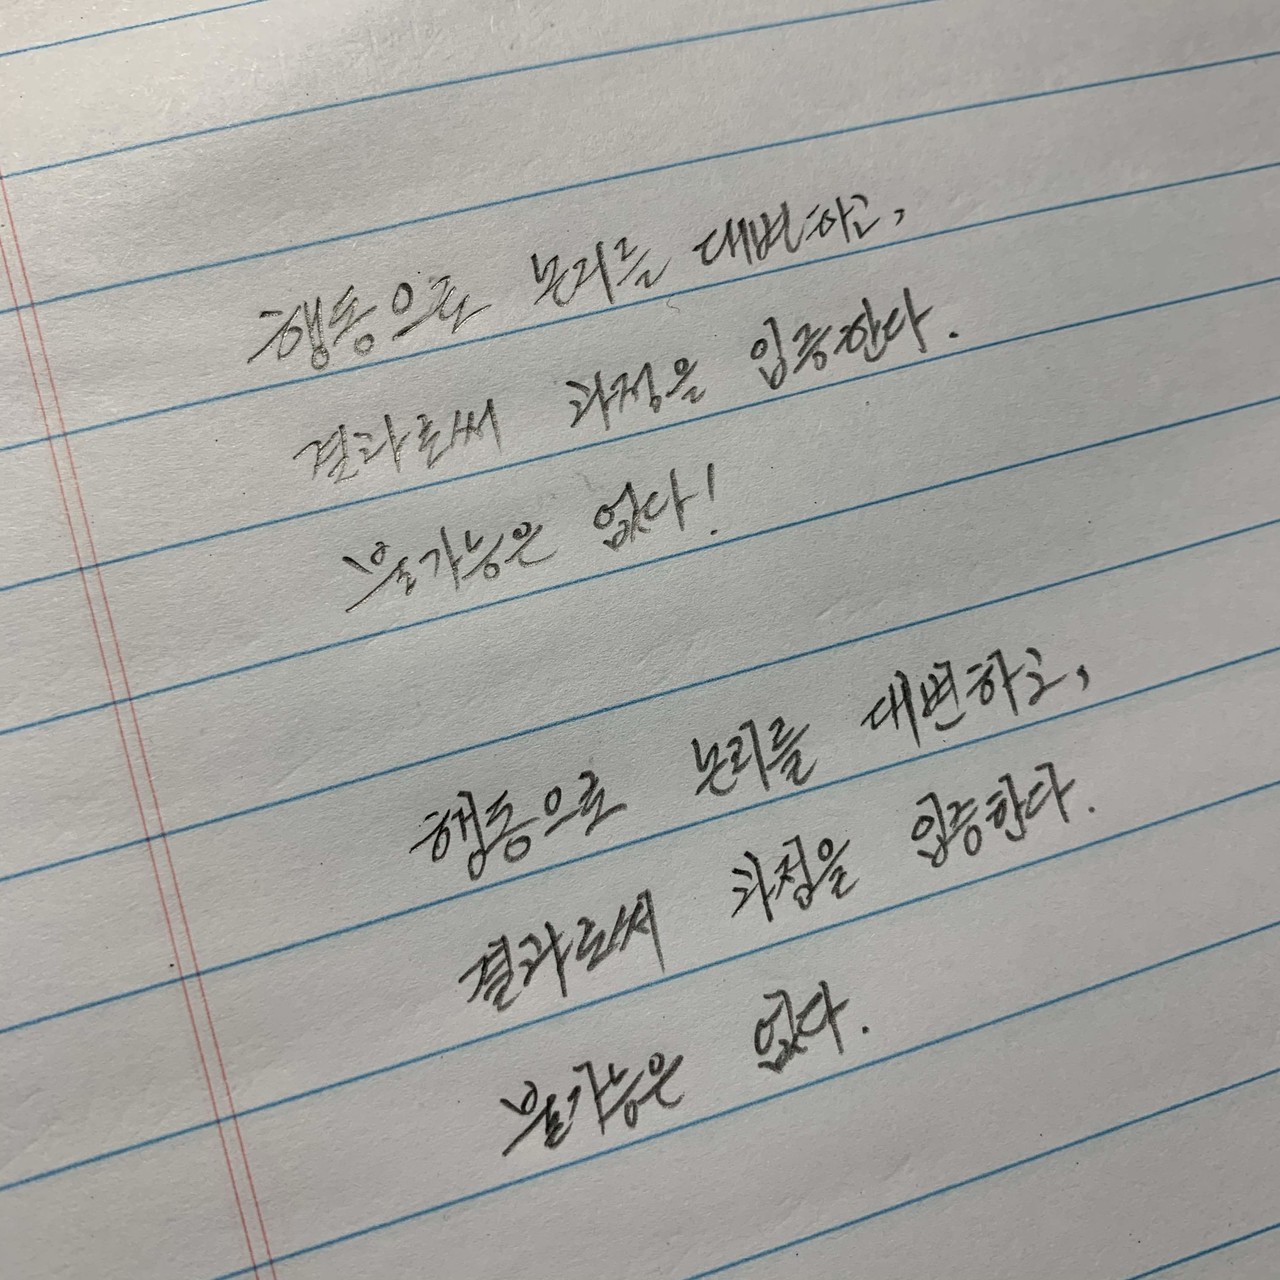 행동으로 논리를 대변하고,
결과로써 과정을 입증한다.
불가능은 없다!
행동으로 논리를 대변하고,
결과로써 과정을 입증한다.
불가능은 없다.